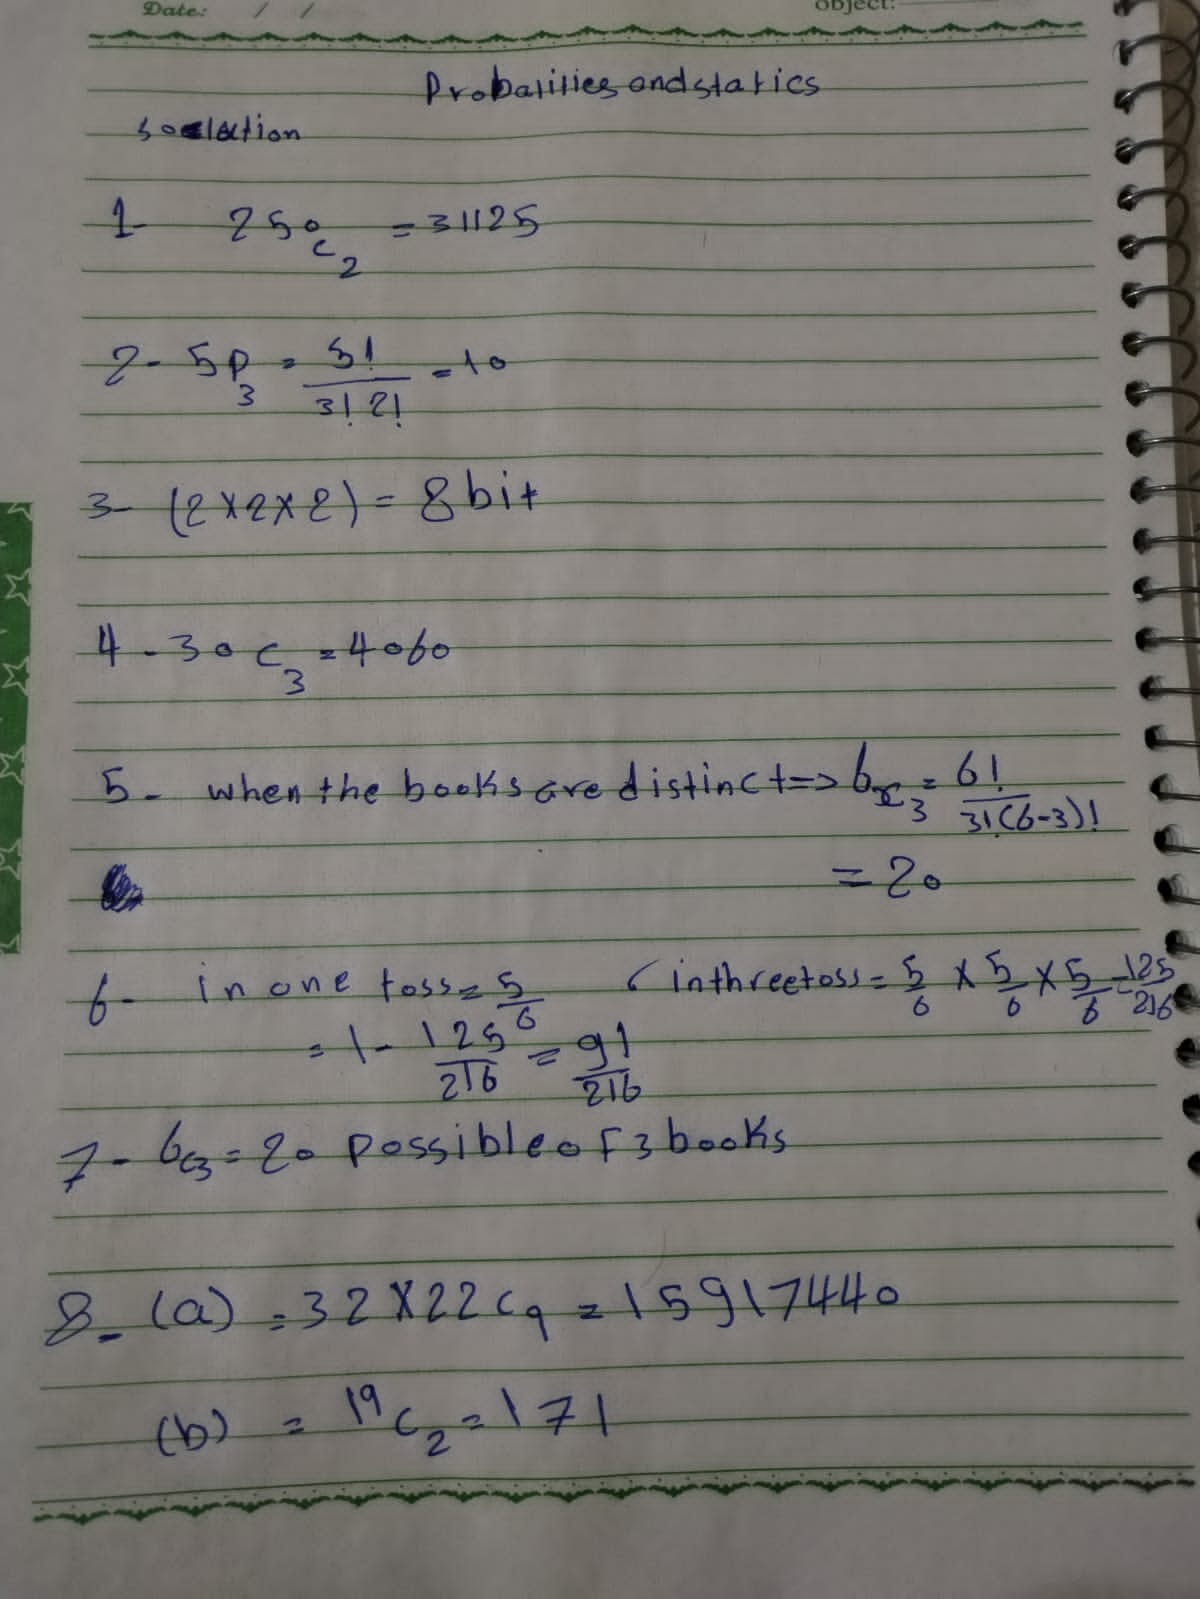 Date: / /
Object:
Probalities and statics
soclution
1- 250c2 = 31125
2- 5p3 = 5! / 3! 2! = 10
3- (2x2x2) = 8bit
4- 30 c3 = 4060
5- when the books are distinct => 6c3 = 6! / 3!(6-3)!
= 20
6- in one toss = 5/6 ( in three toss = 5/6 x 5/6 x 5/6 = 125/216
= 1 - 125/216 = 91/216
7- 6c3 = 20 possible of 3 books
8- (a) = 32 x 22 c9 = 15917440
(b) = 19 c2 = 171